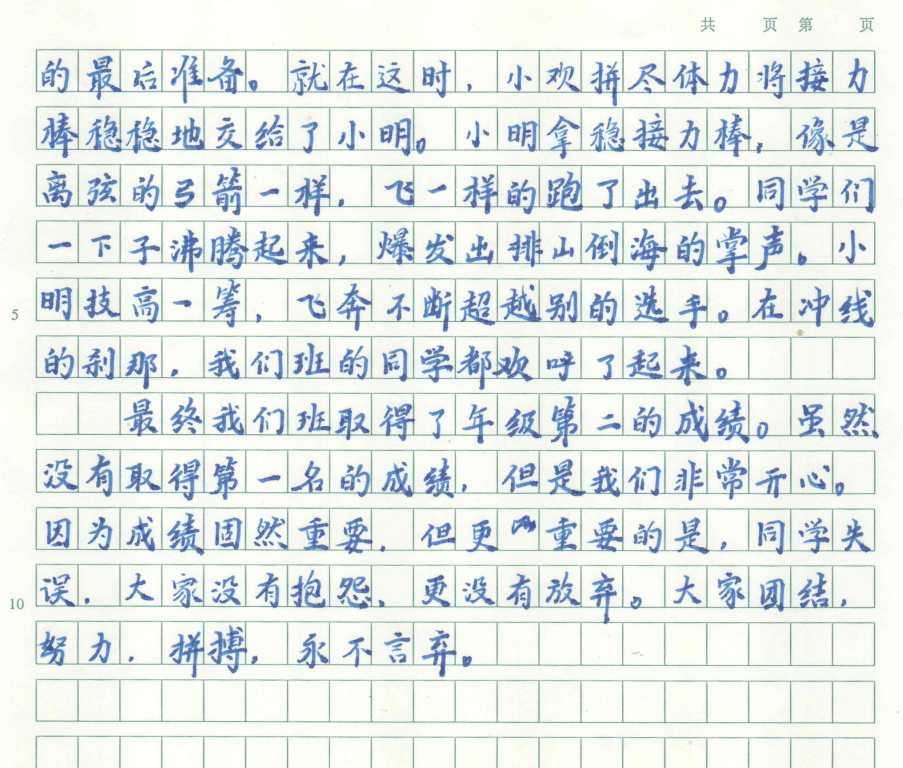 共 页 第 页
的最后准备。就在这时，小欢拼尽体力将接力
棒稳稳地交给了小明。小明拿稳接力棒，像是
离弦的弓箭一样，飞一样的跑了出去。同学们
一下子沸腾起来，爆发出排山倒海的掌声。小
5 明技高一筹，飞奔不断超越别的选手。在冲线
的刹那，我们班的同学都欢呼了起来。
最终我们班取得了年级第二的成绩。虽然
没有取得第一名的成绩，但是我们非常开心。
因为成绩固然重要，但更重要的是，同学失
10 误，大家没有抱怨，更没有放弃。大家团结，
努力，拼搏，永不言弃。